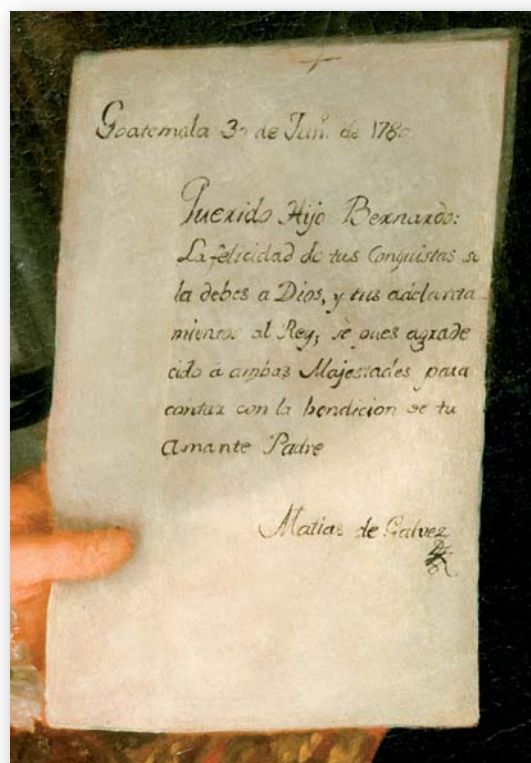 Goatemala 3 de Jun. de 178
Querido Hijo Bernardo:
La felicidad de tus Conquistas se
la debes a Dios, y tus adelanta
mientos al Rey, sè pues agrade
cido á ambas Majestades para
contar con la bendicion de tu
Amante Padre
Matias de Galvez